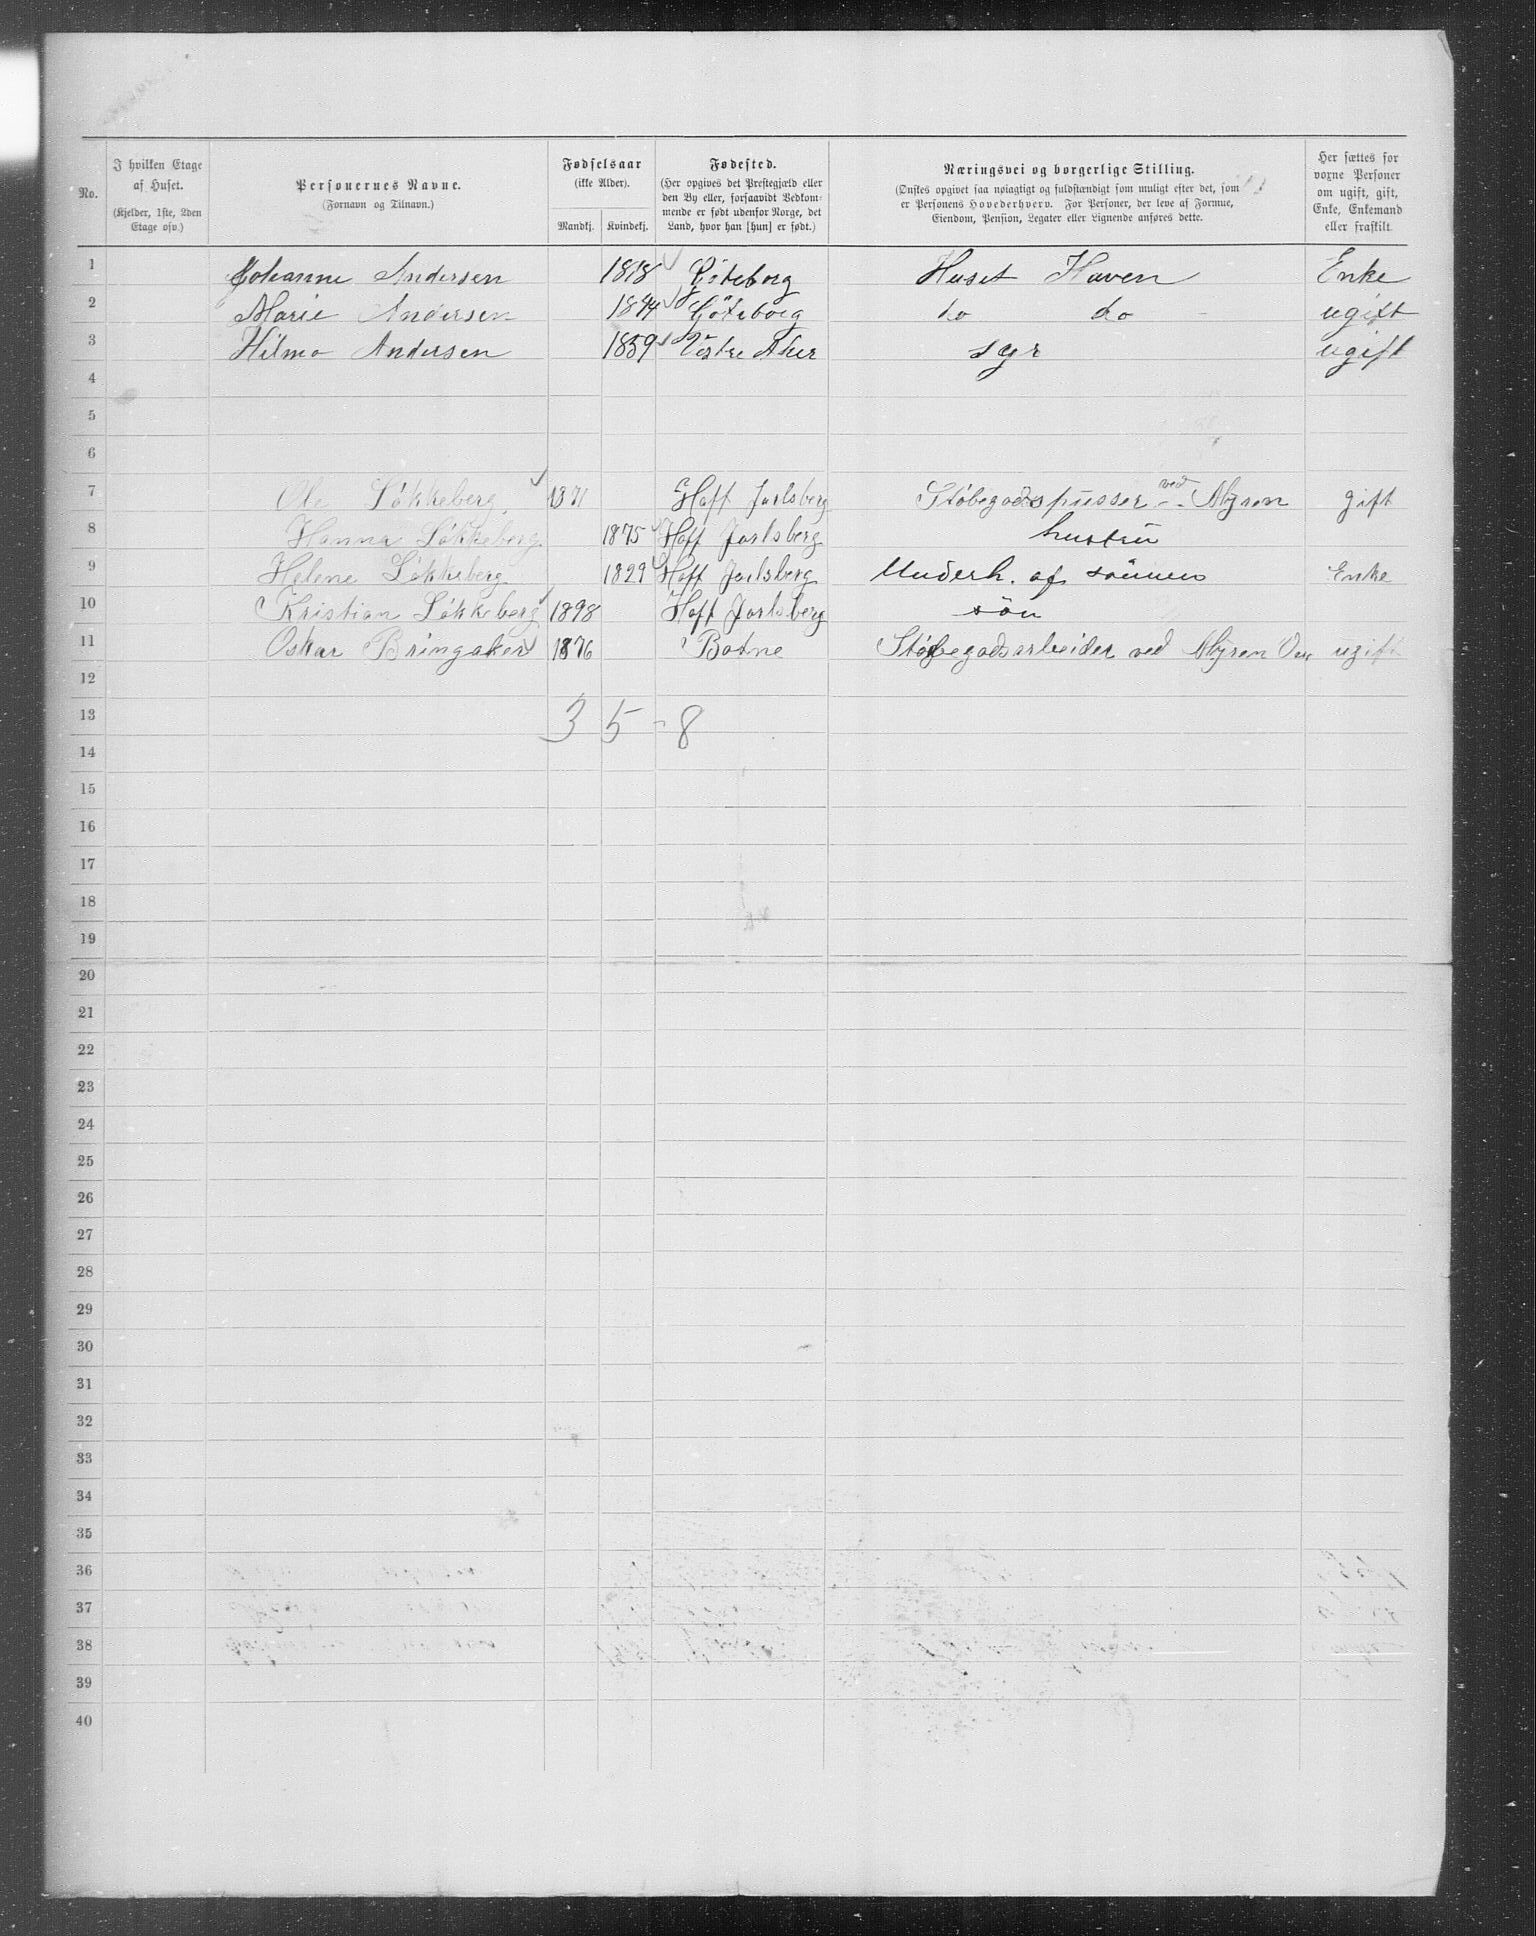 No. | I hvilken Etage af Huset. (Kjelder, 1ste, 2den Etage osv.) | Personernes Navne. (Fornavn og Tilnavn.) | Fødselsaar (ikke Alder). Mandkj. | Kvindekj. | Fødested. (Her opgives det Prestegjæld eller den By eller, forsaavidt Vedkommende er født udenfor Norge, det Land, hvor han [hun] er født.) | Næringsvei og borgerlige Stilling. (Ønskes opgivet saa nøiagtigt og fuldstændigt som muligt efter det, som er Personens Hovederhverv. For Personer, der leve af Formue, Eiendom, Pension, Legater eller Lignende anføres dette. | Her sættes for voxne Personer om ugift, gift, Enke, Enkemand eller fraskilt.
1 Johanne Andersen 1818 Göteborg Huset Haven Enke
2 Marie Andersen 1844 Göteborg do do - ugift
3 Hilma Andersen 1859 Vestre Aker syr ugift
4
5
6
7 Ole Løkkeberg 1871 Hoff Jarlsberg Støbegodspusser ved Myren gift
8 Hanna Løkkeberg 1875 Hoff Jarlsberg hustrü
9 Helene Løkkeberg 1829 Hoff Jarlsberg Underh. af sönnen Enke
10 Kristian Løkkeberg 1898 Hoff Jarlsberg sön
11 Oskar Bringaker 1876 Botne Støbegodsarbeider ved Myren ugift
12
13 3 5 - 8
14
15
16
17
18
19
20
21
22
23
24
25
26
27
28
29
30
31
32
33
34
35
36
37
38
39
40